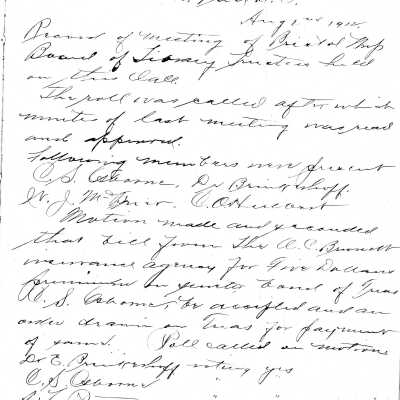 Aug 1st 1912.
Record of Meeting of Bristol Twp
Board of Library Trustees held
on this date.
The roll was called after which
minutes of last meeting was read
and approved.
Following members were present
C. S. Osborne, Dr Brinkerhoff,
W. J. C. O. Hurlbart
Motion made and seconded
that bill from The O. C. Bennett
insurance agency for Five Dollars
premium on surety bond of Treas
C. S. Osborne, be accepted and an
order drawn on Treas for payment
of same. Roll called on motion
Dr E. Brinkerhoff voting yes
C. S. Osborne " "